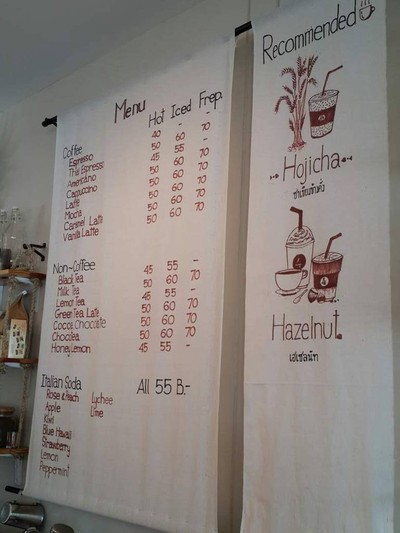 Menu
Hot Iced Frep.
Coffee
Espresso 40 - -
Thai Espresso 50 60 70
Americano 45 55 -
Cappuccino 50 60 70
Latte 50 60 70
Mocha 50 60 70
Caramel Latte 50 60 70
Vanilla Latte 50 60 70
Non-Coffee
Black Tea 45 55 -
Milk Tea 50 60 70
Lemon Tea 45 55 -
Green Tea Latte 50 60 70
Cocoa, Chocolate 50 60 70
Choc Tea 50 60 70
Honey Lemon 45 55 -
Italian Soda All 55 B.-
Rose & Peach Lychee
Apple Lime
Kiwi
Blue Hawaii
Strawberry
Lemon
Peppermint
Recommended
Hojicha
ชาเขียวคั่ว
Hazelnut
เฮเซลนัท